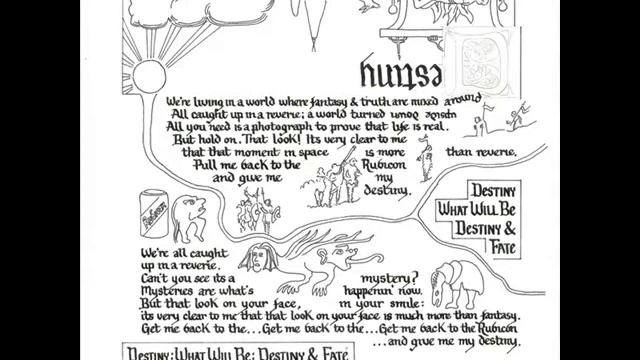 Destiny
We're living in a world where fantasy & truth are mixed around
All caught up in a reverie; a world turned upside down
All you need is a photograph to prove that life is real.
But hold on. That look! It's very clear to me
that that moment in space is more than reverie.
Pull me back to the Rubicon
and give me my
destiny.
Destiny
What Will Be
Destiny &
Fate
We're all caught
up in a reverie.
Can't you see its a mystery?
Mysteries are what's happenin' now.
But that look on your face, in your smile:
its very clear to me that that look on your face is much more than fantasy.
Get me back to the... Get me back to the... Get me back to the Rubicon
...and give me my destiny.
Destiny: What Will Be: Destiny & Fate